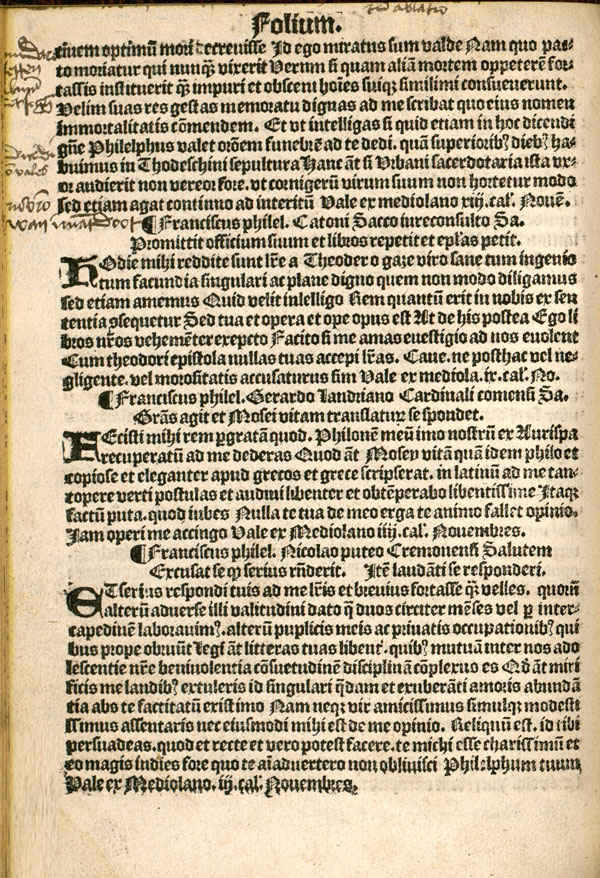 Folium.
ciuem optimū mori decreuisse Id ego miratus sum valde Nam quo pac-
to moriatur qui nunq̄ʒ vixerit Verum si quam aliā mortem oppeterē for-
tassis instituerit q̄ʒ impuri et obsceni hoīes suiqʒ simillimi consueuerunt.
Velim suas res gestas memoratu dignas ad me scribat quo eius nomen
immortalitatis cōmendem. Et vt intelligas si quid etiam in hoc dicendi
gn̄e Philelphus valet orōem funebrē ad te dedi. quā superiorib⁹ dieb⁹ ha-
buimus in Thodeschini sepultura Hanc āt si Vrbani sacerdotaria ista vx-
or audierit non vereor fore. vt cornigerū virum suum non hortetur modo
sed etiam agat continuo ad interitū Vale ex mediolano xiij. cal. Nouē.
¶ Franciscus philel. Catoni Sacco iureconsulto Sa.
Promittit officium suum et libros repetit et ep̄las petit.
HOdie mihi reddite sunt lr̄e a Theodero gaze viro sane tum ingenio
tum facundia singulari ac plane digno quem non modo diligamus
sed etiam amemus Quid velit intelligo Rem quantū erit in nobis ex sen
tentia ꝯsequetur Sed tua et opera et ope opus est At de his postea Ego li
bros nr̄os vehemēter expecto Facito si me amas euestigio ad nos euolent
Cum theodori epistola nullas tuas accepi lr̄as. Caue. ne posthac vel ne-
gligente. vel morositatis accusaturus sim Vale ex mediola. ix. cal. No.
¶ Franciscus philel. Gerardo landriano Cardinali comensi Sa.
Grās agit et Mosei vitam translatuꝝ se spondet.
FEcisti mihi rem ꝑgratā quod. Philonē meū imo nostrū ex Aurispa
recuperatū ad me dederas Quod āt Mosey vitā quā idem philo et
copiose et eleganter apud grecos et grece scripserat. in latinū ad me tan-
topere verti postulas et audiui libenter et obtēperabo libentissime Itaqʒ
factū puta. quod iubes Nulla te tua de meo erga te animo fallet opinio.
Iam operi me accingo Vale ex Mediolano iiij. cal. Nouembres.
¶ Franciscus philel. Nicolao puteo Cremonensi Salutem
Excusat se ꝙ serius rn̄derit. Itē laudāti se responderi.
ET serius respondi tuis ad me lr̄is et breuius fortasse q̄ʒ velles. quorū
alterū aduerse illi valitudini dato q̄ duos circiter mēses vel ꝑ inter-
capedinē laborauim⁹. alterū puplicis meis ac priuatis occupationib⁹ qui
bus prope obruūt Legi āt litteras tuas libent̄. quib⁹ mutuā inter nos ado
lescentie nr̄e beniuolentia cōsuetudinē disciplinā cōplexus es Qd̄ āt miri
ficis me laudib⁹ extuleris id singulari q̄dam et exuberāti amoris abundā
tia abs te factitatū existimo Nam neqʒ vir amicissimus simulqʒ modesti
ssimus assentaris nec eiusmodi mihi est de me opinio. Reliquū est. id tibi
persuadeas. quod et recte et vero potest facere. te michi esse charissimū et
eo magis indies fore quo te aīaduertero non obliuisci Philelphum tuum
Vale ex Mediolano. iij. cal. Nouembres.